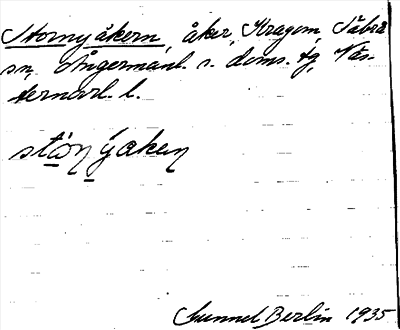 Stornyåkern, åker, Kragom, Säbrå
sn, Ångermanl. s. doms. tg, Väs-
ternorrl. l.
stòrṇýaken
Gunnel Berlin 1935